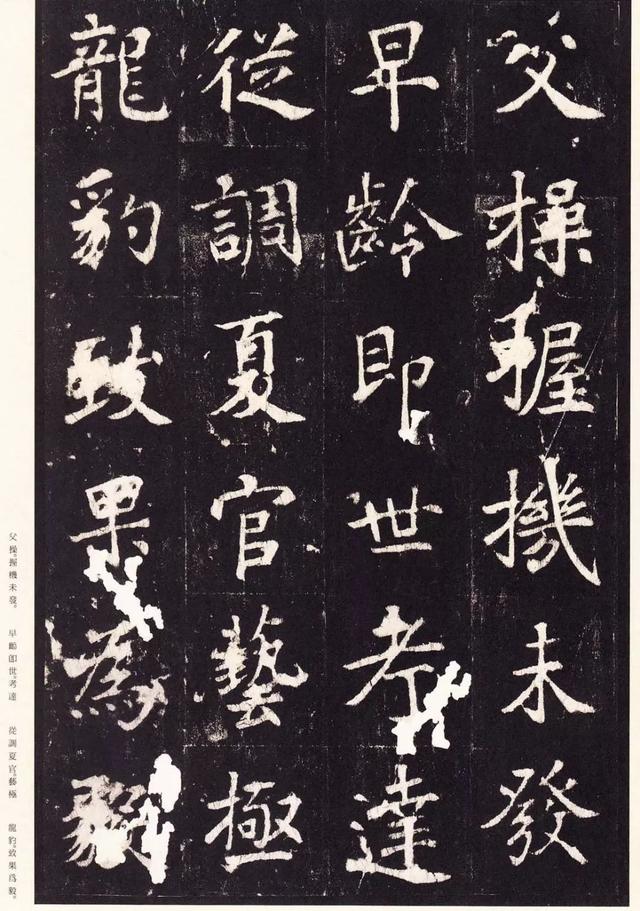 父操握機未發
早齡即世考達
從調夏官藝極
龍豹致果為毅
父操。握機未發。
早齡即世。考達
從調夏官。藝極
龍豹。致果為毅。